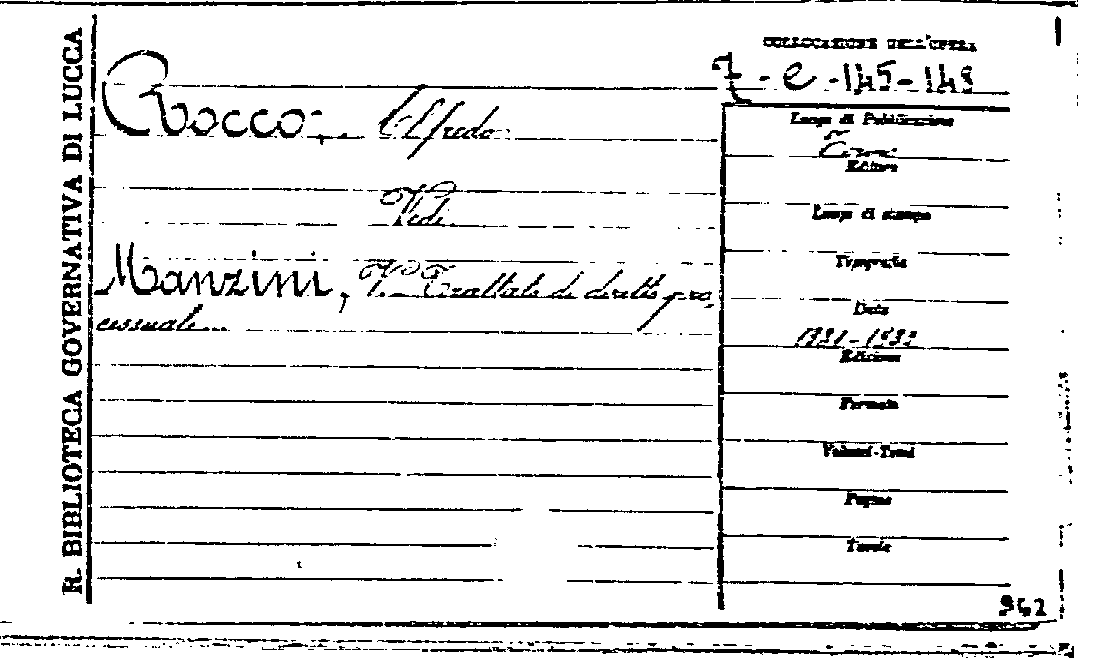 R. BIBLIOTECA GOVERNATIVA DI LUCCA
COLLOCAZIONE DELL'OPERA
7 - e - 145 - 148
Rocco, Alfredo
Vedi
Manzini, V. Trattato di diritto pro,
cessuale...
Luogo di Pubblicazione
Editore
Luogo di stampa
Tipografia
Data
1931-1932
Edizione
Formato
Volumi-Tomi
Pagine
Tavole